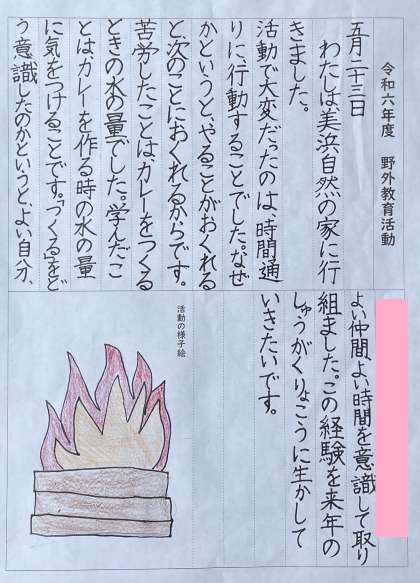 令和六年度 野外教育活動
五月二十三日
わたしは、美浜自然の家に行
きました。
活動で大変だったのは、時間通
りに、行動することでした。なぜ
かというと、やることがおくれる
と、次のことにおくれるからです。
苦労したことは、カレーをつくる
ときの水の量でした。学んだこ
とはカレーを作る時の水の量
に気をつけることです。「つくる」をど
う意識したのかというと、よい自分、
よい仲間、よい時間を意識して取り
組ました。この経験を来年の
しゅうがくりょこうに生かして
いきたいです。
活動の様子絵